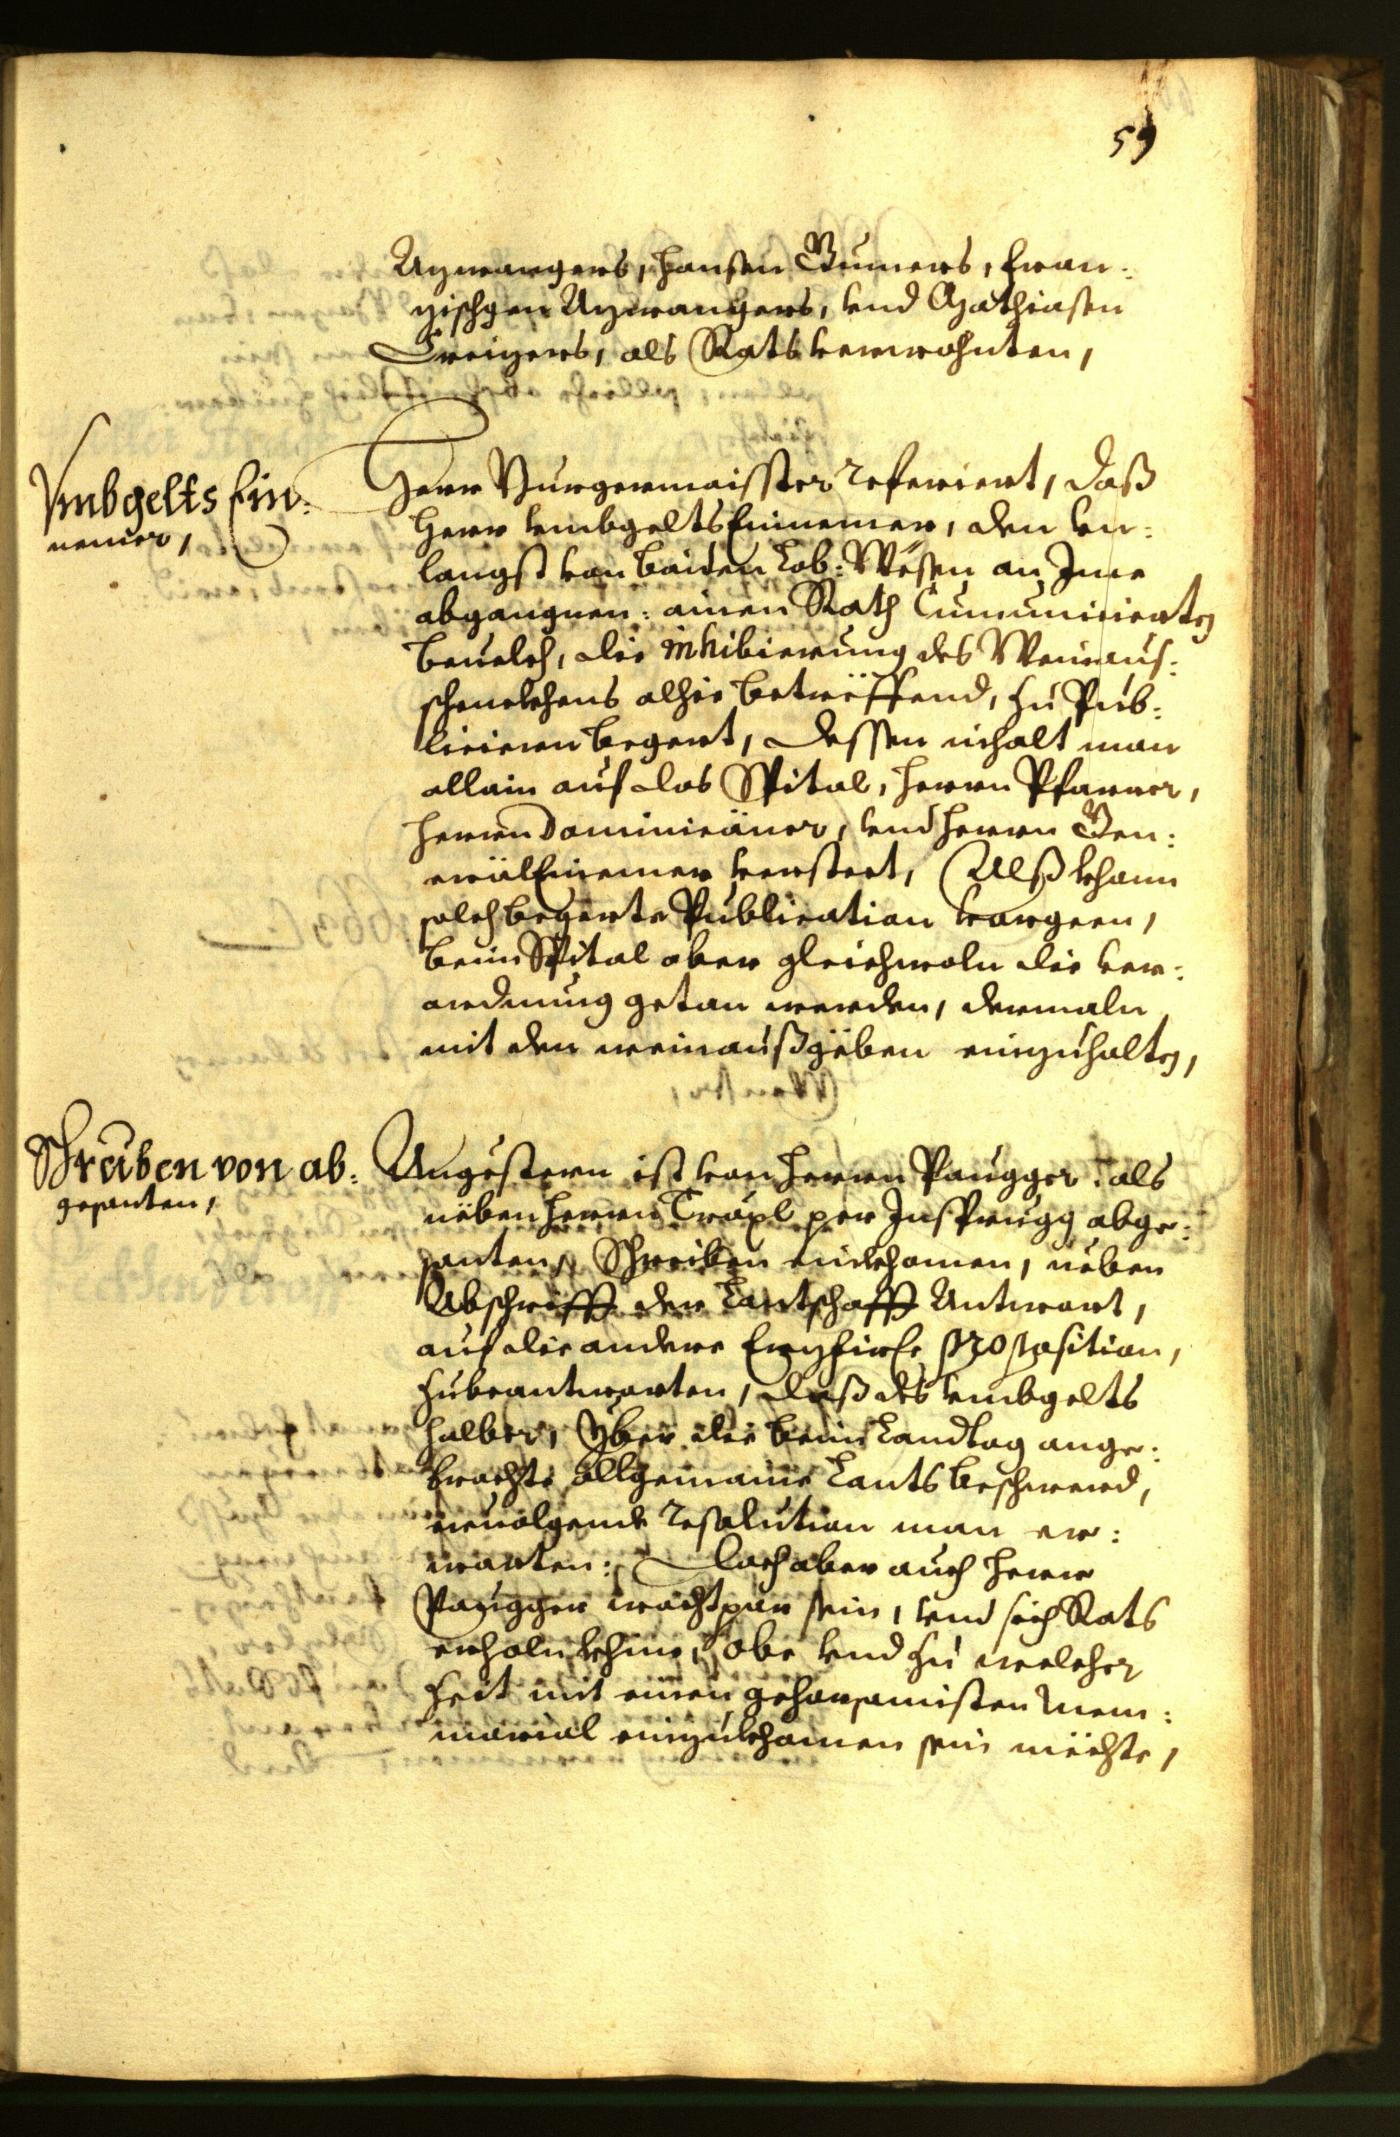 59
Azwangers, Hansen Gumers, Fran:
zischgen Azwangers, vnd Mathiasen
Creizers, als Rats verwohnten,
Vmbgelts Ein:
nemer,
Herr Burgermaisster referiert, daß
Herr vmbgelts Einnemer, den vn:
langst von baiden Lob: Wesen an Ime
abgangnen: ainen Rath Cumuniciertn
beuelch, die inhibierung des Weinaus:
schenckhens alhie betreffend, zu Pub:
licieren begert, dessen inhalt man
allain auf das Spital, Herrn Pfarrer,
Herrn Dominicäner, vnd Herrn Gen:
eräl Einemer versteet, Alß khann
solch begerte Publication vorgeen,
beim Spital aber gleichwoln die ver:
ordnung getan werden, dermaln
mit den weinaußgëben einzuhaltn,
Schreiben von ab:
gesanten,
Angestern ist von Herrn Paugger: als
nëben Herrn Träxl per Insprugg abge:
santen, Schreiben einkhomen, nëben
Abschrifft der Lantschafft Antwort,
auf die andere Erzfürstl: proposition,
zubeantworten, daß des vmbgelts
halber, yber die beim Landtag ange:
brachte allgemaine Lants beschwerd,
eruolgende resolution man er:
warten: Doch aber auch Herr
Paugger wachtpar sein, vnd sich Rats
erholn khine, obe vnd zu welcher
Zeit mit einen gehorsamisten Mem:
morial einzukhomen sein mëchte,